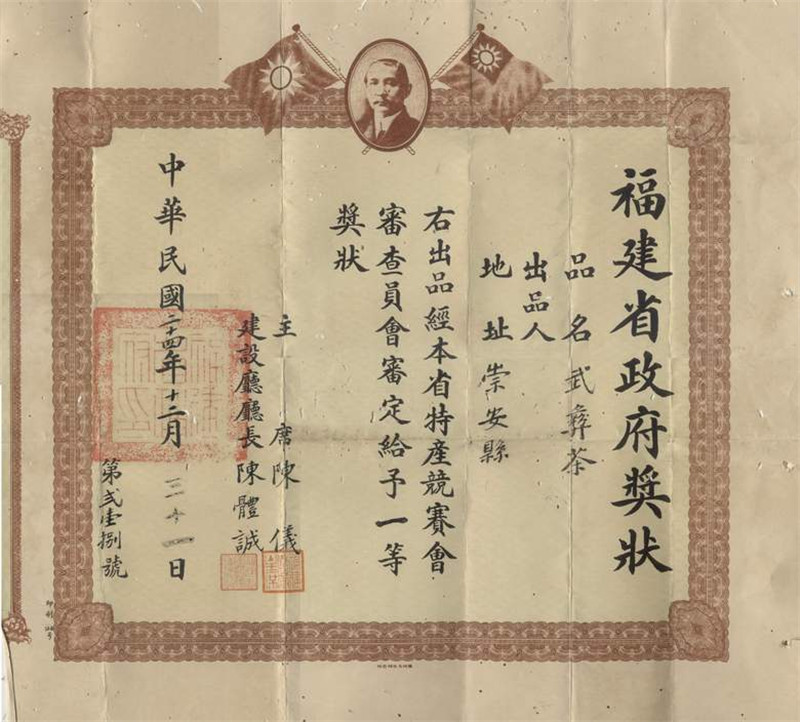 福建省政府獎狀
品名武彝茶
出品人
地址崇安縣
右出品經本省特產競賽會
審查員會審定給予一等
獎狀
主席陳儀
建設廳廳長陳體誠
中華民國二十四年十二月三十一日
第貳壹捌號